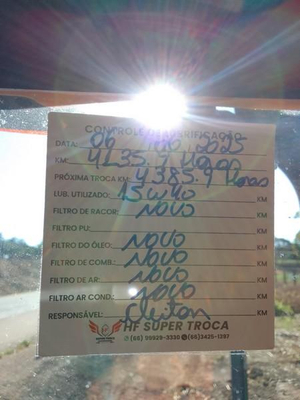 CONTROLE DE LUBRIFICAÇÃO
DATA: 06 2025
KM: 4135.9 Horas
PRÓXIMA TROCA KM: 4385.9 Horas
LUB. UTILIZADO: 15W40 KM
FILTRO DE RACOR: NOVO KM
FILTRO PU: KM
FILTRO DO ÓLEO: NOVO KM
FILTRO DE COMB.: NOVO KM
FILTRO DE AR: NOVO KM
FILTRO AR COND.: NOVO KM
RESPONSÁVEL: Cleiton
HF SUPER TROCA
(66) 99929-3330 (66)3425-1287